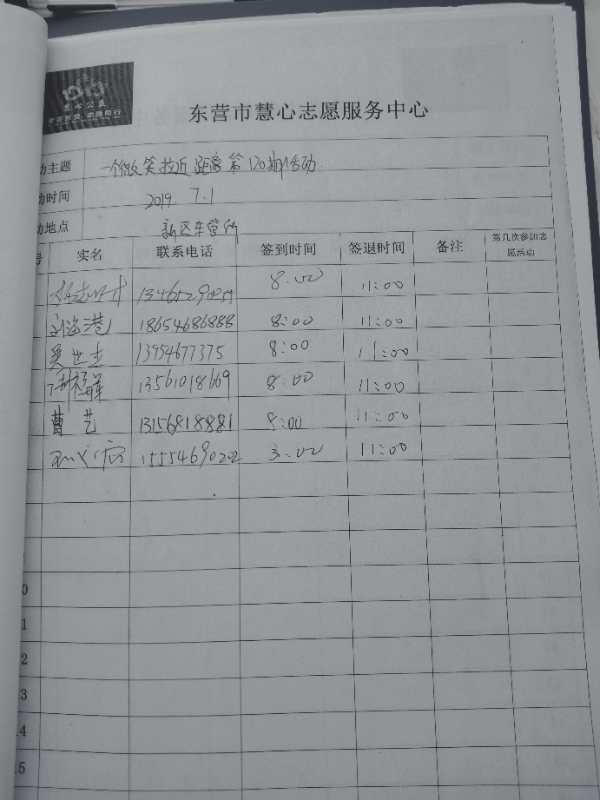 东营市慧心志愿服务中心
动主题 一个微笑拉近距离第120期活动
动时间 2019 7.1
动地点 新区车管所
号 实名 联系电话 签到时间 签退时间 备注 第几次参加志愿活动
8:00 11:00
刘海港 18654686888 8:00 11:00
13954677375 8:00 11:00
13561018669 8:00 11:00
曹艺 13156818881 8:00 11:00
11:00
0
1
2
3
14
15